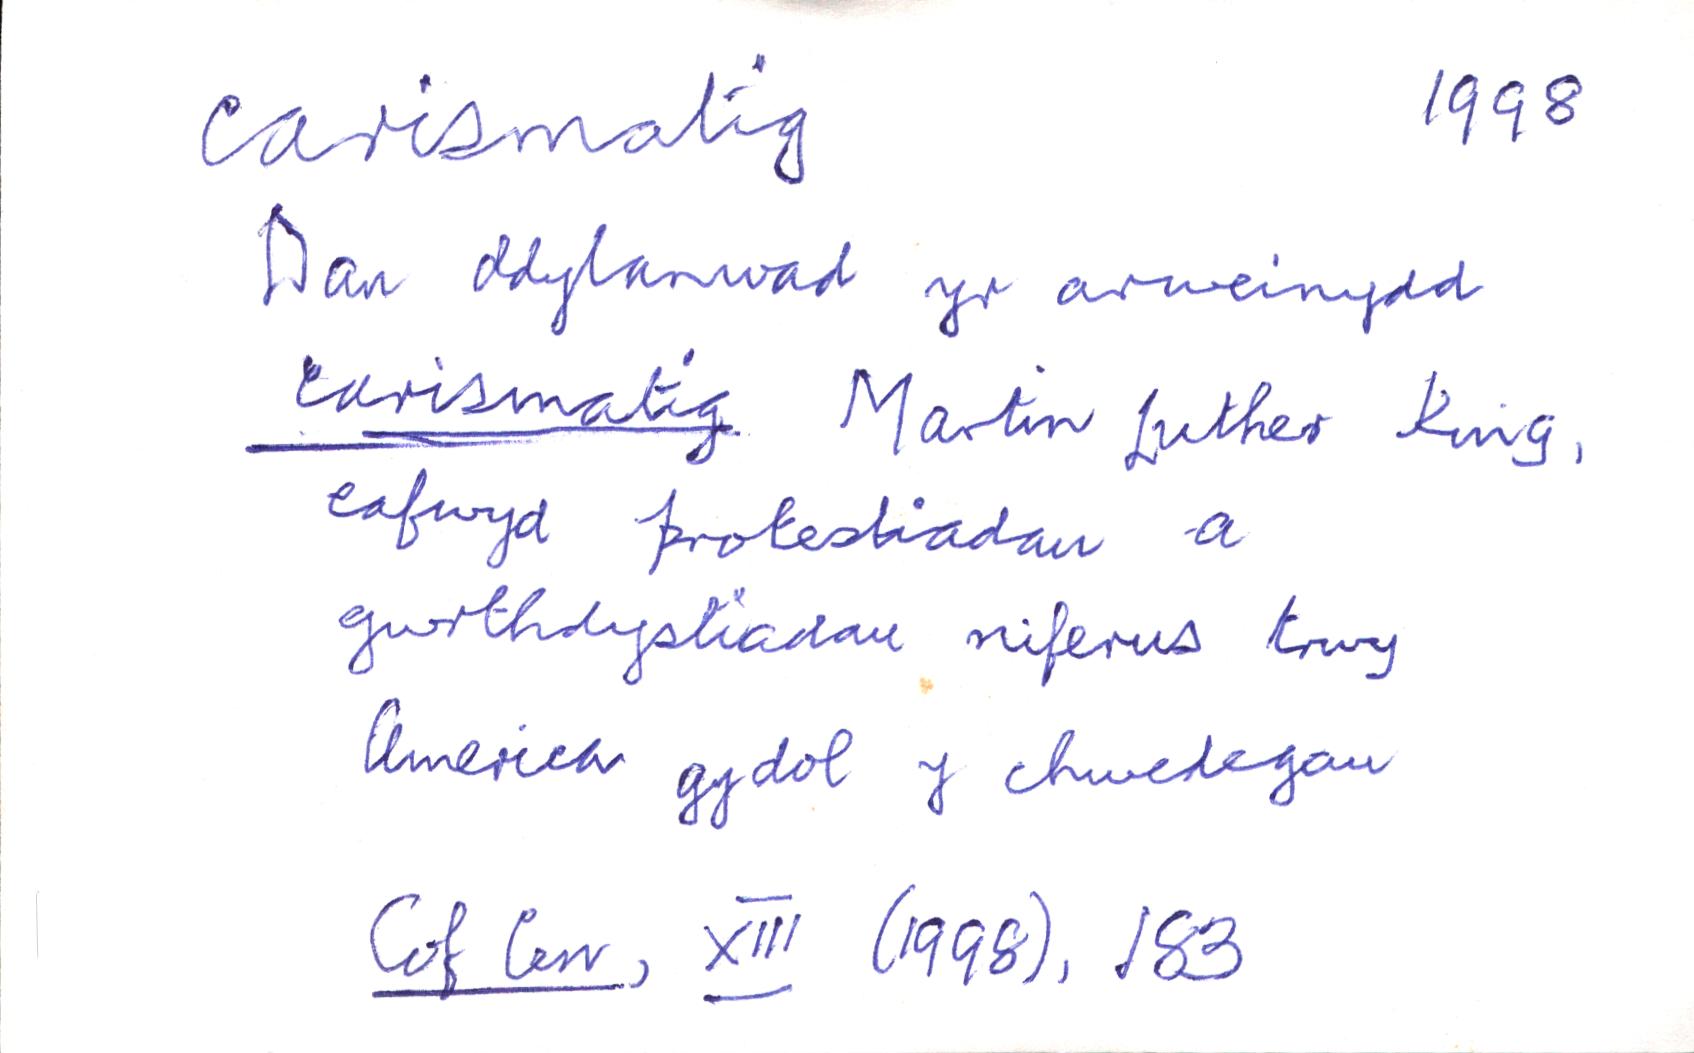 carismatig 1998
Dan ddylanwad yr arweinydd
carismatig Martin Luther King,
cafwyd protestiadau a
gwrthdystiadau niferus trwy
America gydol y chwedegau
Cof Cen, XIII (1998), 183